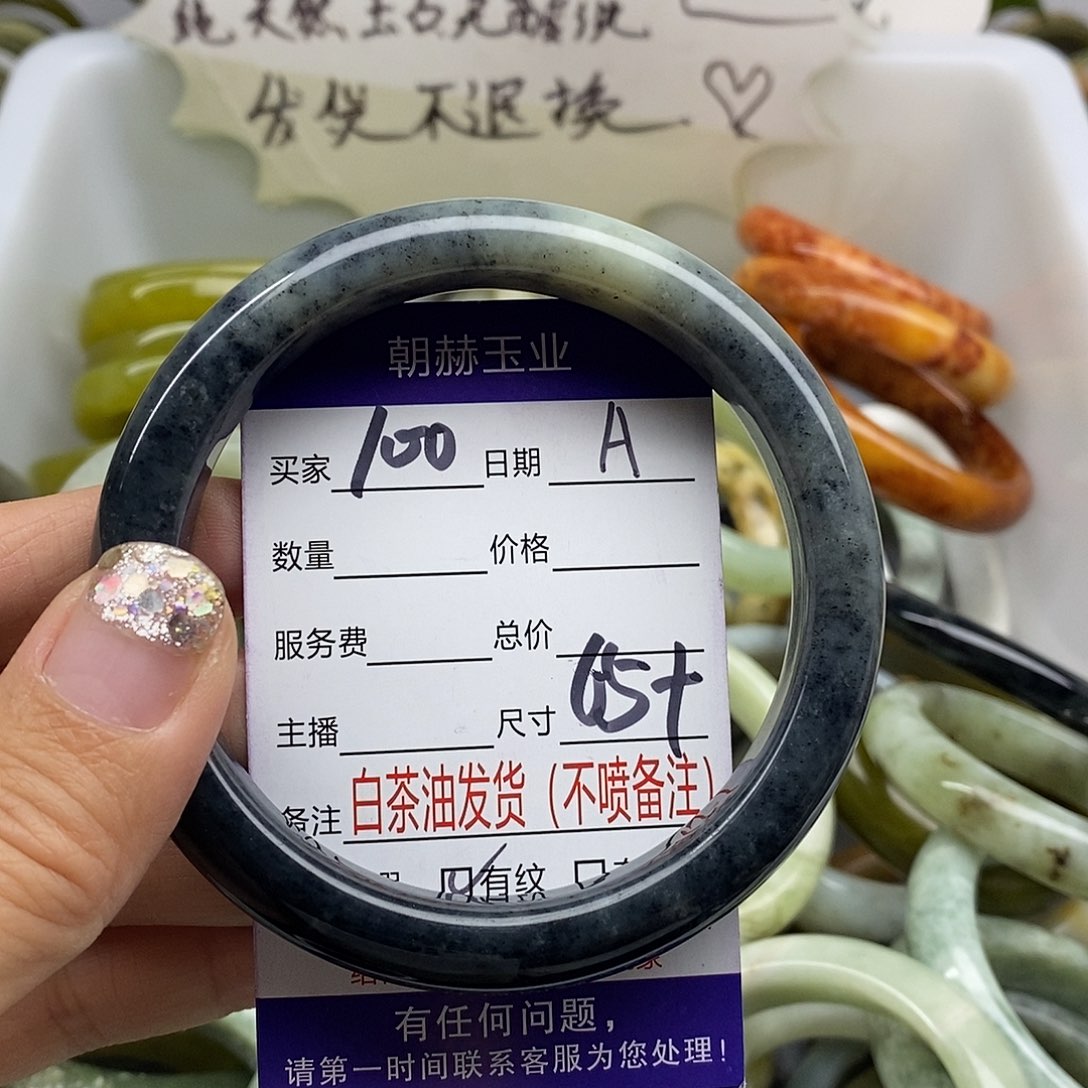 纯天然玉石无酸洗
发货不退换
朝赫玉业
买家 100 日期 A
数量 价格
服务费 总价
主播 尺寸 65+
备注 白茶油发货（不喷备注）
有纹
有任何问题，
请第一时间联系客服为您处理！